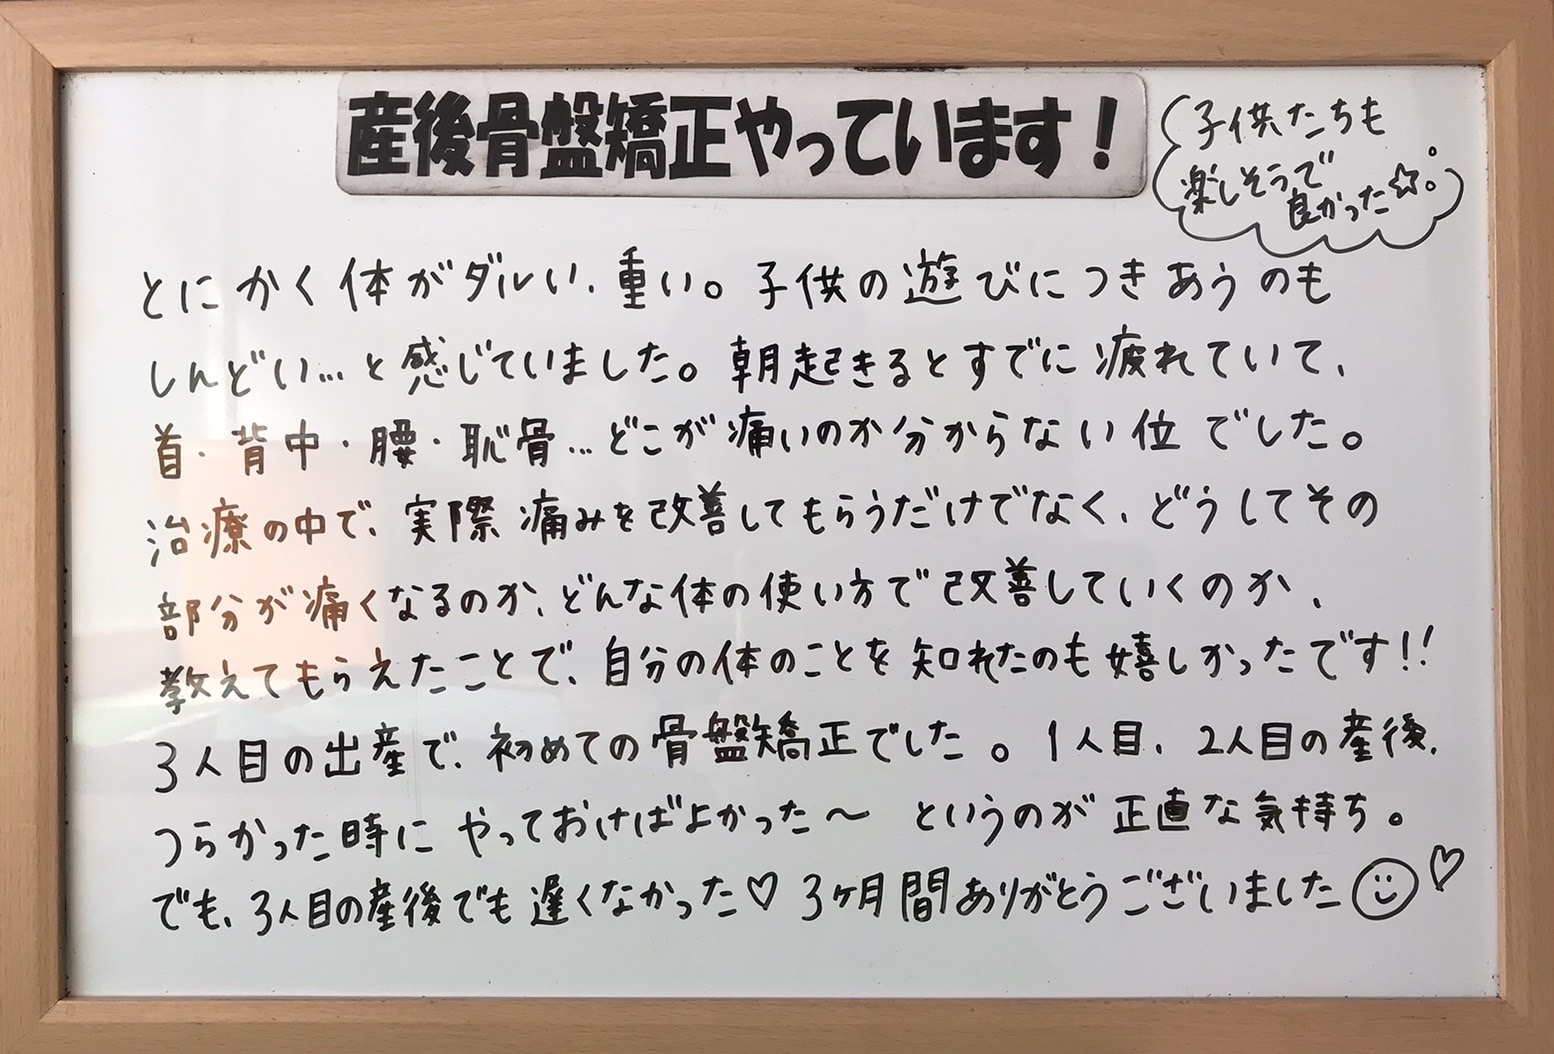 産後骨盤矯正やっています！
子供たちも
楽しそうで
良かった☆。
とにかく体がダルい、重い。子供の遊びにつきあうのも
しんどい…と感じていました。朝起きるとすでに疲れていて、
首・背中・腰・恥骨…どこが痛いのか分からない位でした。
治療の中で、実際痛みを改善してもらうだけでなく、どうしてその
部分が痛くなるのか、どんな体の使い方で改善していくのか、
教えてもらえたことで、自分の体のことを知れたのも嬉しかったです!!
3人目の出産で、初めての骨盤矯正でした。1人目、2人目の産後、
つらかった時にやっておけばよかった〜というのが正直な気持ち。
でも、3人目の産後でも遅くなかった♡3ヶ月間ありがとうございました☺♡